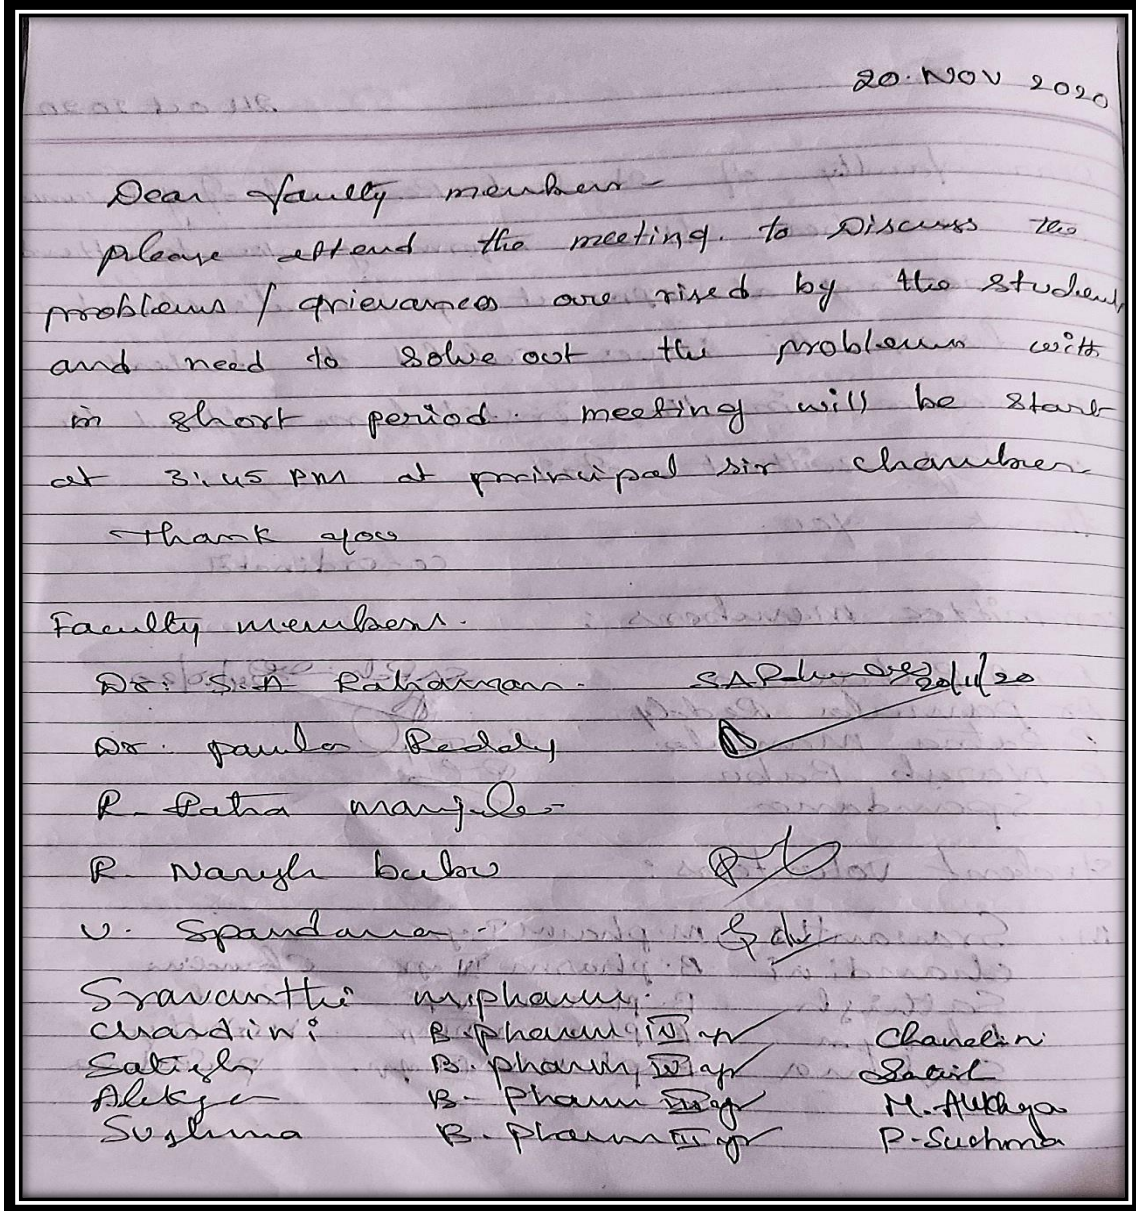 20. NOV 2020
Dear faulty members
please attend the meeting. to Discuss the
problems / grievances are rised by the students
and need to solve out the problems with
in short period. meeting will be start
at 3:45 PM at principal sir chamber
Thank you
Faculty members.
Dr. S.A Rahaman. 20/11/20
Dr. pamula Reddy
R. Ratna manjula
R. Naresh babu
V. Spandana
Sravanthi m.pharm.
chandini B.pharm IV yr Chandini
Satish B. pharm, IV yr Satish
Alekya B. Pharm III yr M. Alekhya
Sushma B. pharm III yr P. Sushma